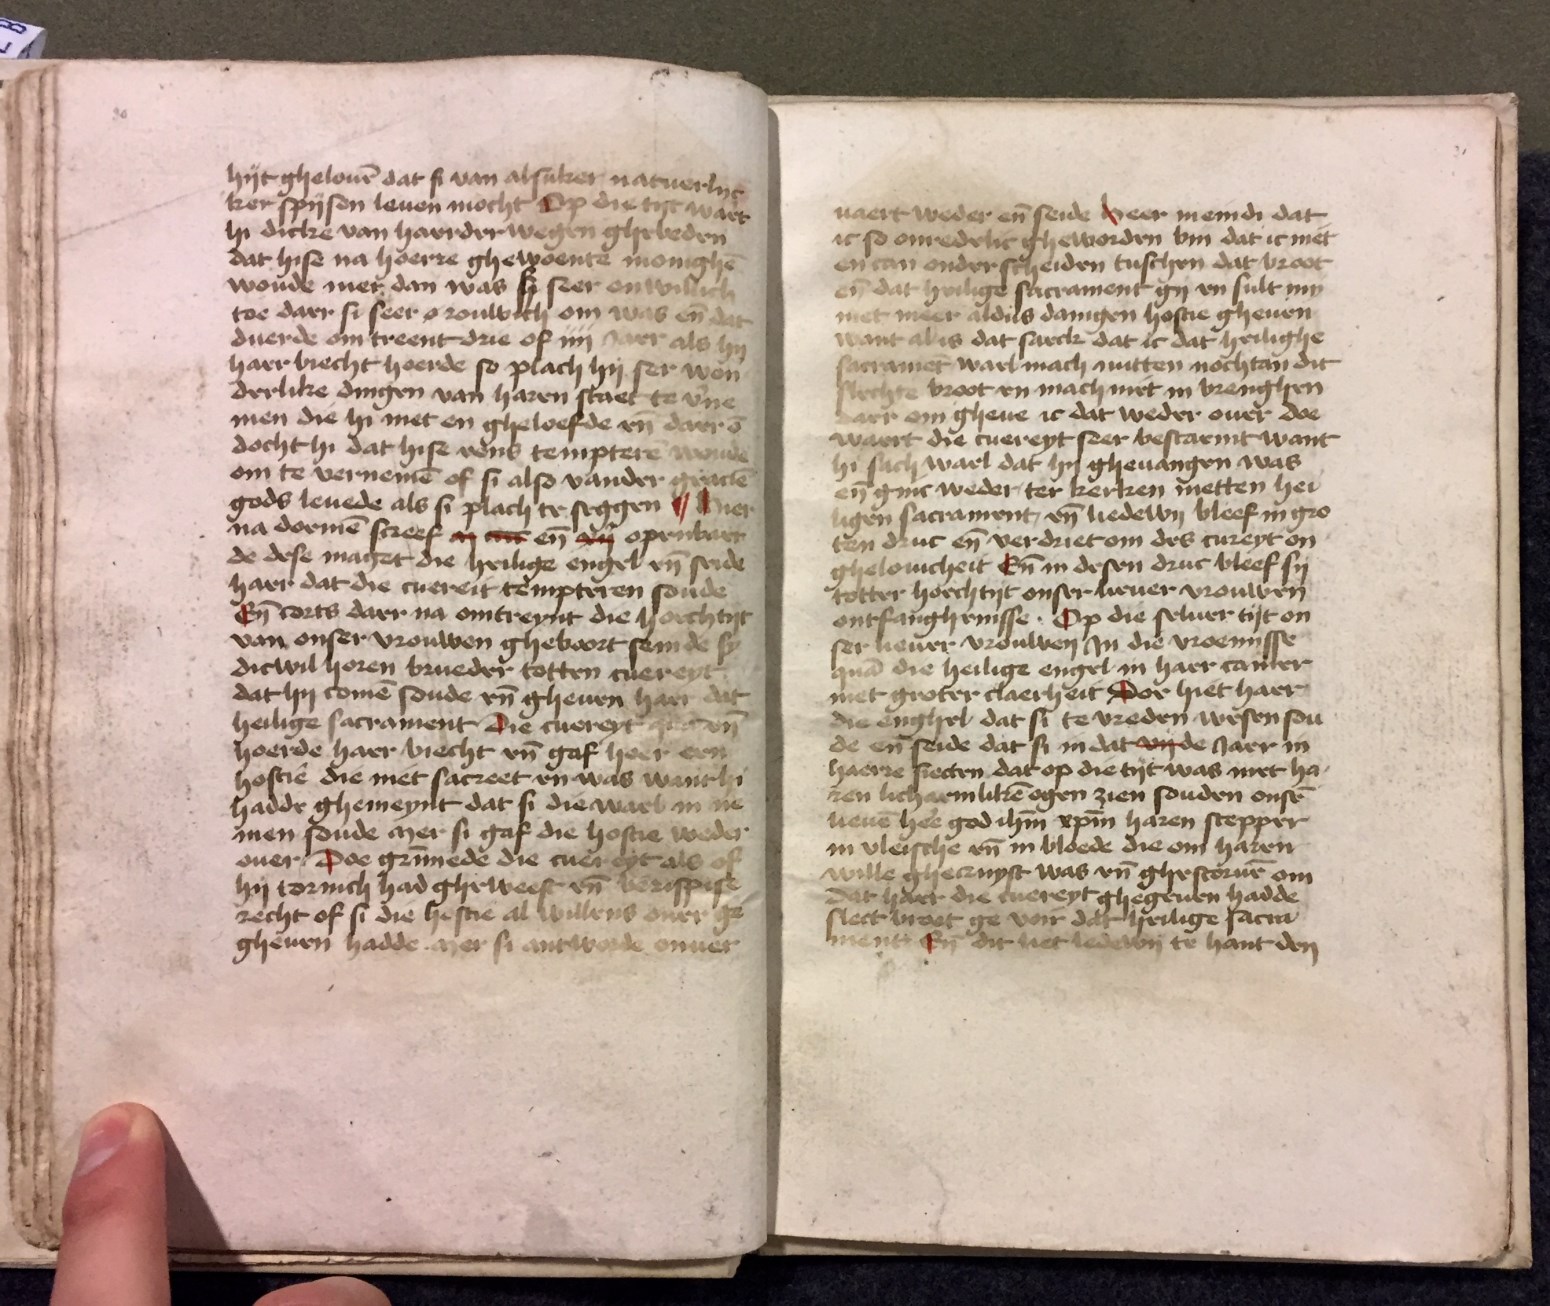 hijt ghelouē dat si van alsulker natuerlijc
ker spijsen leuen mocht Op die tijt wart
hi dicke van haerder wegen ghebeden
dat hise na hoerre ghewoente monighē
woude met dan was hi seer onwillich
toe daer si seer o roulwich om was en̄ dat
duerde omtreent drie of iiij Jaer als hij
haer biecht hoerde so plach hij ser won
derlike dingen van haren staet te v̄ne
men die hi niet en gheloefde en̄ daer ō
docht hi dat hise eens tempterē woude
om te vernemē of si also vander gracië
gods leuede als si plach te seggen ¶ Hier
na doemē screef en̄ openbaer
de dese maget die heilige engel en̄ seide
haer dat die cuereit tempteren soude
En̄ corts daer na omtreynt die hoechtijt
van onser vrouwen gheboort seinde sy
dicwil horen brueder totten cuereyt
dat hij comē soude en̄ gheuen haer dat
heilige sacrament Die cuereyt en̄
hoerde haer biecht en̄ gaf hoer een
hostië die niet sacreet en was want hi
hadde ghemeynt dat si die wael in ne
men soude Mer si gaf die hostie weder
ouer Doe grimede die cuereyt als of
hij tornich had gheweest en̄ berispese
recht of si die hostie al willens ouer ge
gheuen hadde Mer si antworde onuer
uaert weder en̄ seide Heer meindi dat
ic so onredelic gheworden bin dat ic niet
en can onderscheiden tuschen dat broot
en̄ dat heilige sacrament gij en sult my
niet meer aldus danigen hostie gheuen
want al is dat sacck dat ic dat heilighe
sacramēt wael mach nutten nochtan dit
slechte broot en mach niet in brenghen
daer om gheue ic dat weder ouer doe
waert die cuereyt seer bescaemt want
hi sach wael dat hij gheuangen was
en̄ ginc weder ter kerken metten hei
ligen sacrament, en̄ liedewij bleef in gro
ten druc en̄ verdriet om des cureyt on
ghelouicheit En̄ in desen druc bleef sij
totter hoechtijt onser lieuer vrouwen
ontfanghenisse. Op die seluer tijt on
ser lieuer vrouwen In die vroemisse
quā die heilige engel in haer camer
met groter claerheit Doe hiet haer
die enghel dat si te vreden wesen sou
de en̄ seide dat si in dat de Jaer in
haerre siecten dat op die tijt was met ha
ren lichaemlikē ogen zien souden onsē
lieuē hee god ihm̄ xpm̄ haren scepper
in vleische en̄ in bloede die om haren
wille ghecruyst was en̄ ghestoruē om
dat haer die cuereyt ghegeuen hadde
slect broet ge voir dat heilige sacra
ment En̄ dit liet ledewij te hant den